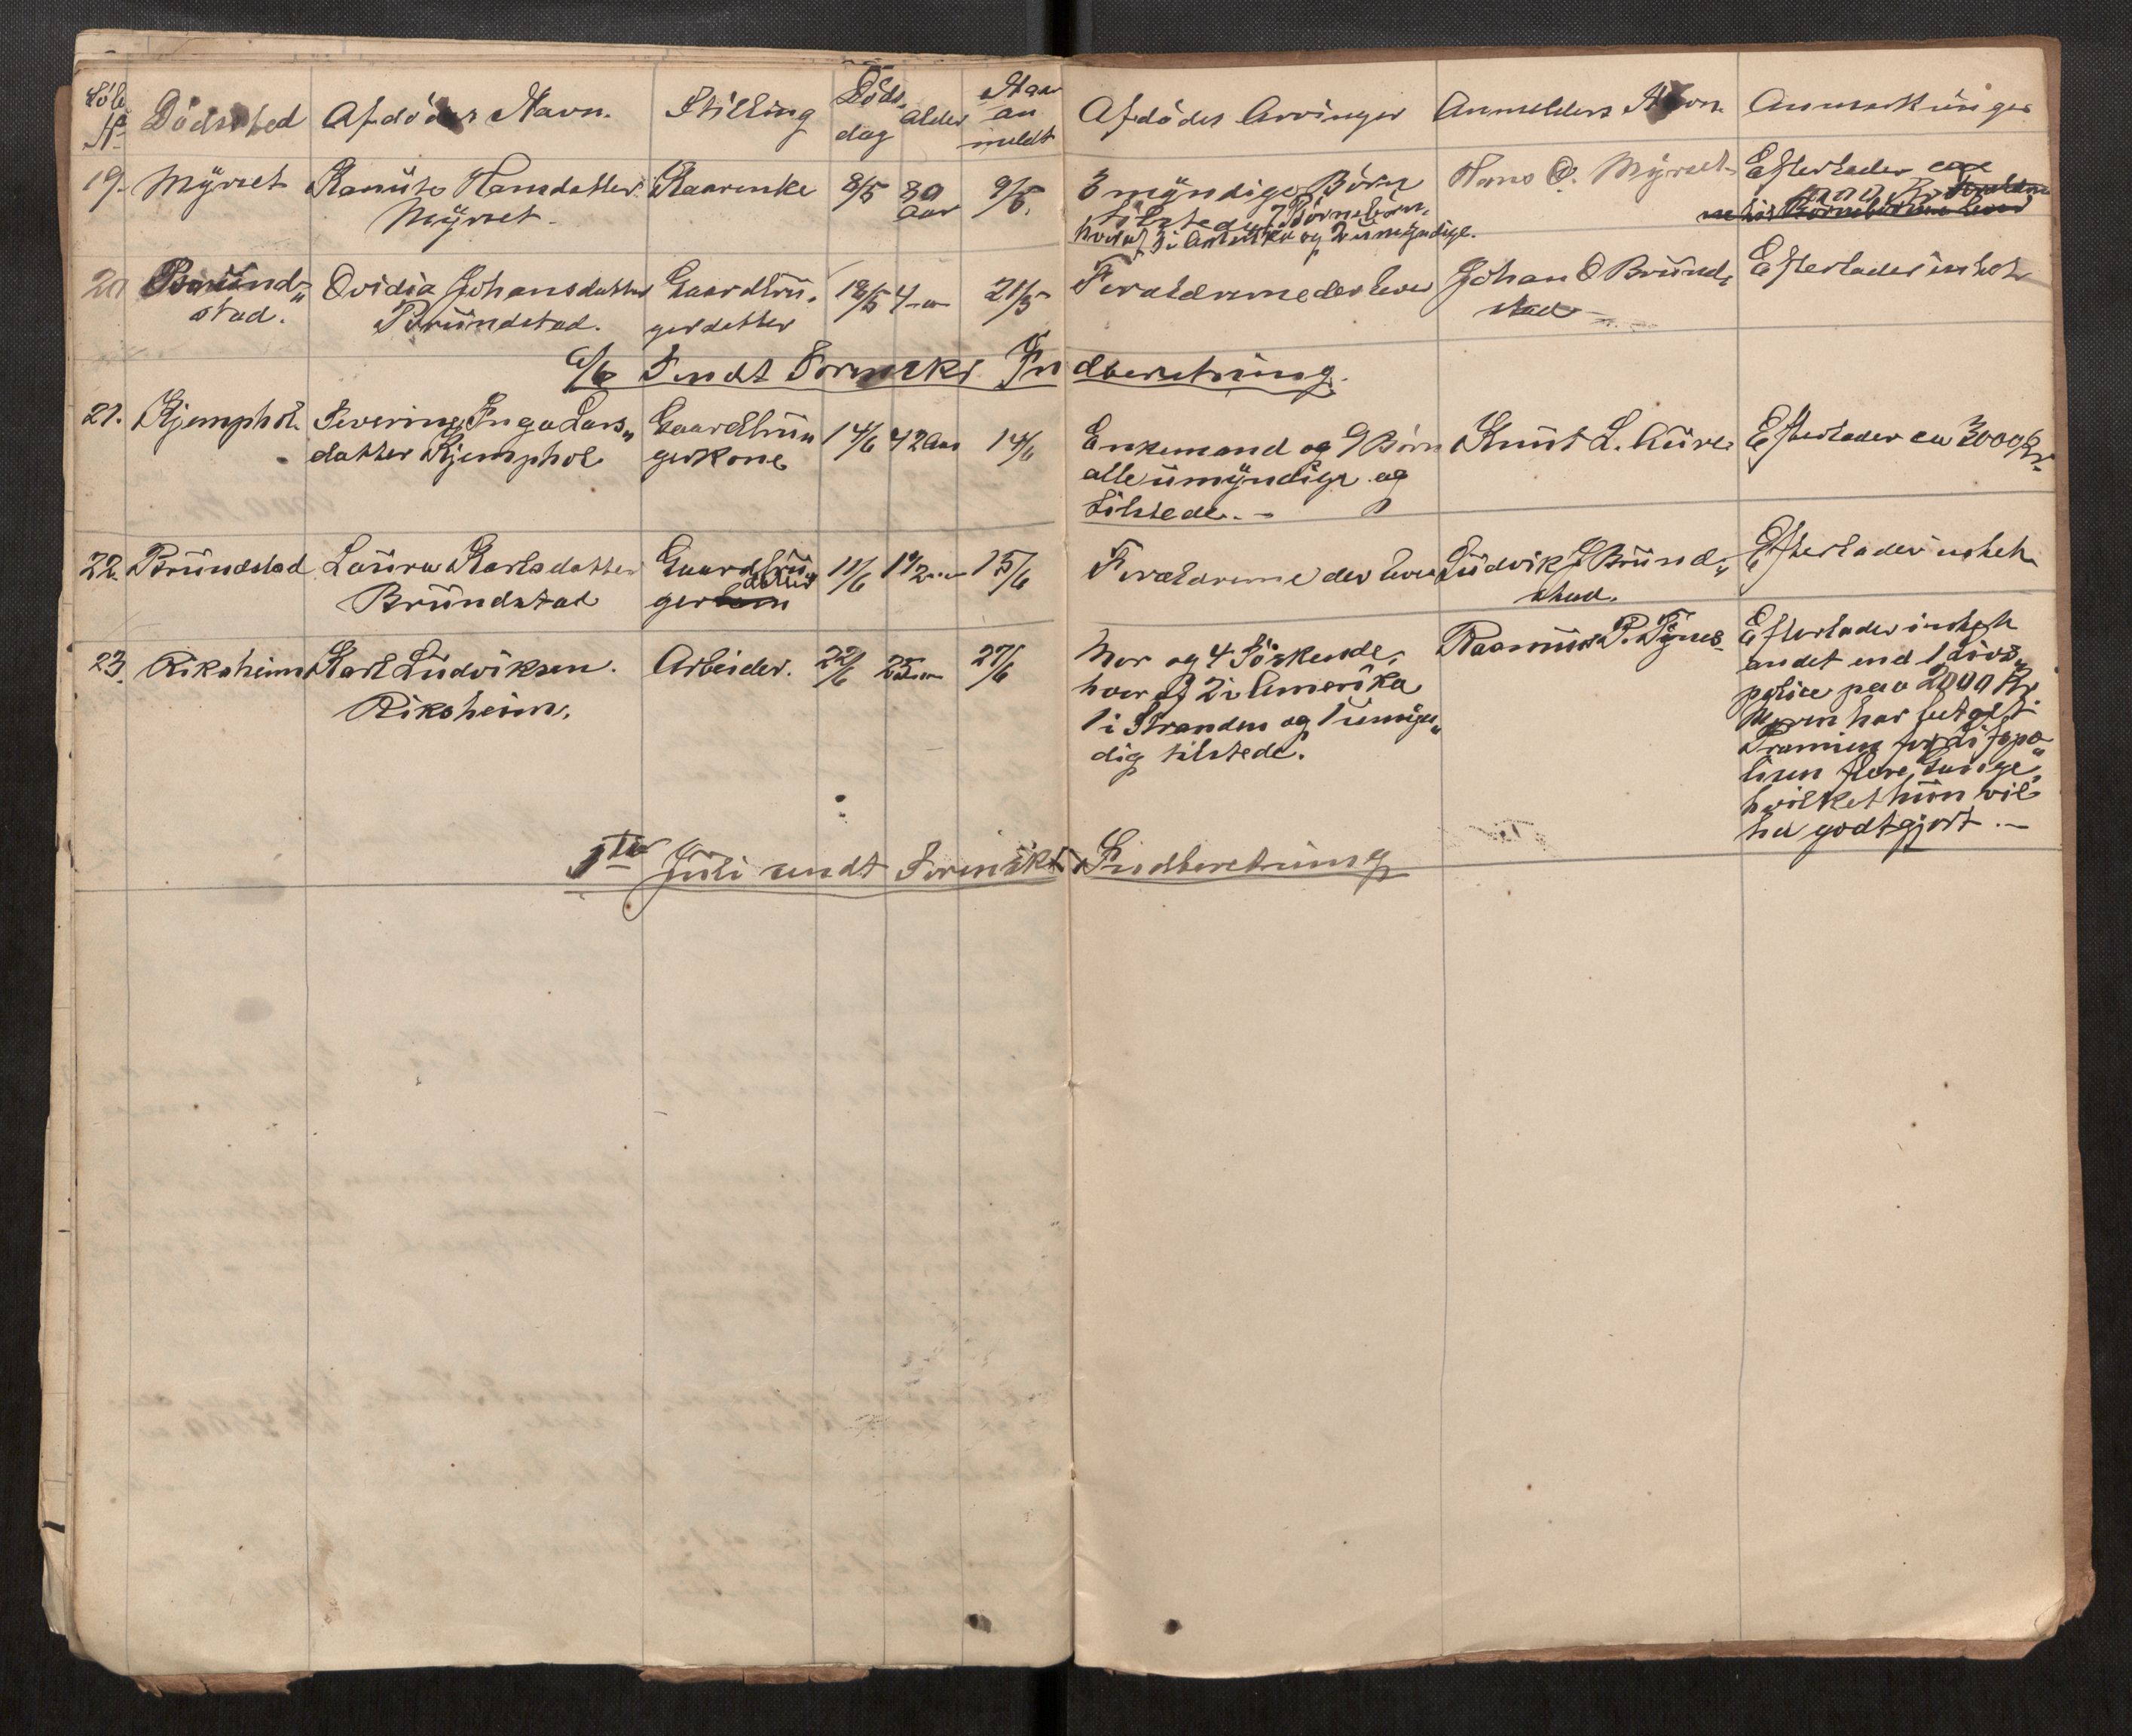 Löbe No Dödssted Afdödes Navn. Stilling Döds dag alder Naar an meldt Afdödes Arvinger Anmelders Navn. Anmerkninger
19. Myrset Hansdatter Myrset. Kaarenke 8/5 80 Aar 9/5.
3 myndige Börn tilstede, 7 Börnebörn, hvoraf 3 i Amerika og 2 umyndige.
Hans O. Myrset
Efterlader ca
20 Bründ„
stad.
Ovidia Johansdatter
Bründstad.
Gaardbrü„
gerdatter
18/5 4 21/5
Foraldrene der lever
Johan O Bründ„
stad
Efterlader intet
6/6 Sendt Sorenskr Indberetning.
21. Kjemphol
Severine Inga Lars„
datter Kjemphol
Gaardbrü„
gerkone
14/6 42 Aar 14/6
Enkemand og 9 Börn
alle ümyndige og
tilstede. -
Knüt L. Aüre
Efterlader ca 3000 Kr.
22. Bründstad
Laüra Karlsdatter
Bründstad
Gaardbrü
ger datter
11/6 1 1/2 15/6
Foraldrene der lever
Lüdvik J Bründ„
stad.
Efterlader intet
23. Riksheim
Karl Lüdviksen.
Riksheim.
Arbeider. 22/6 25 27/6
Mor og 4 Söskende,
hvoraf 2 i Amerika
1 i Stranden og 1 ümyn„
dig tilstede.
Rasmüs P. Tynes
Efterlader intet
andet end 1 Livs„
police paa 2000 Kr.
Moren har betalt
Premien for Livspo„
licen flere Gange,
hvilket hün vil
ha godtgjort. -
1ste Jüli sendt Sorenskr Indberetning